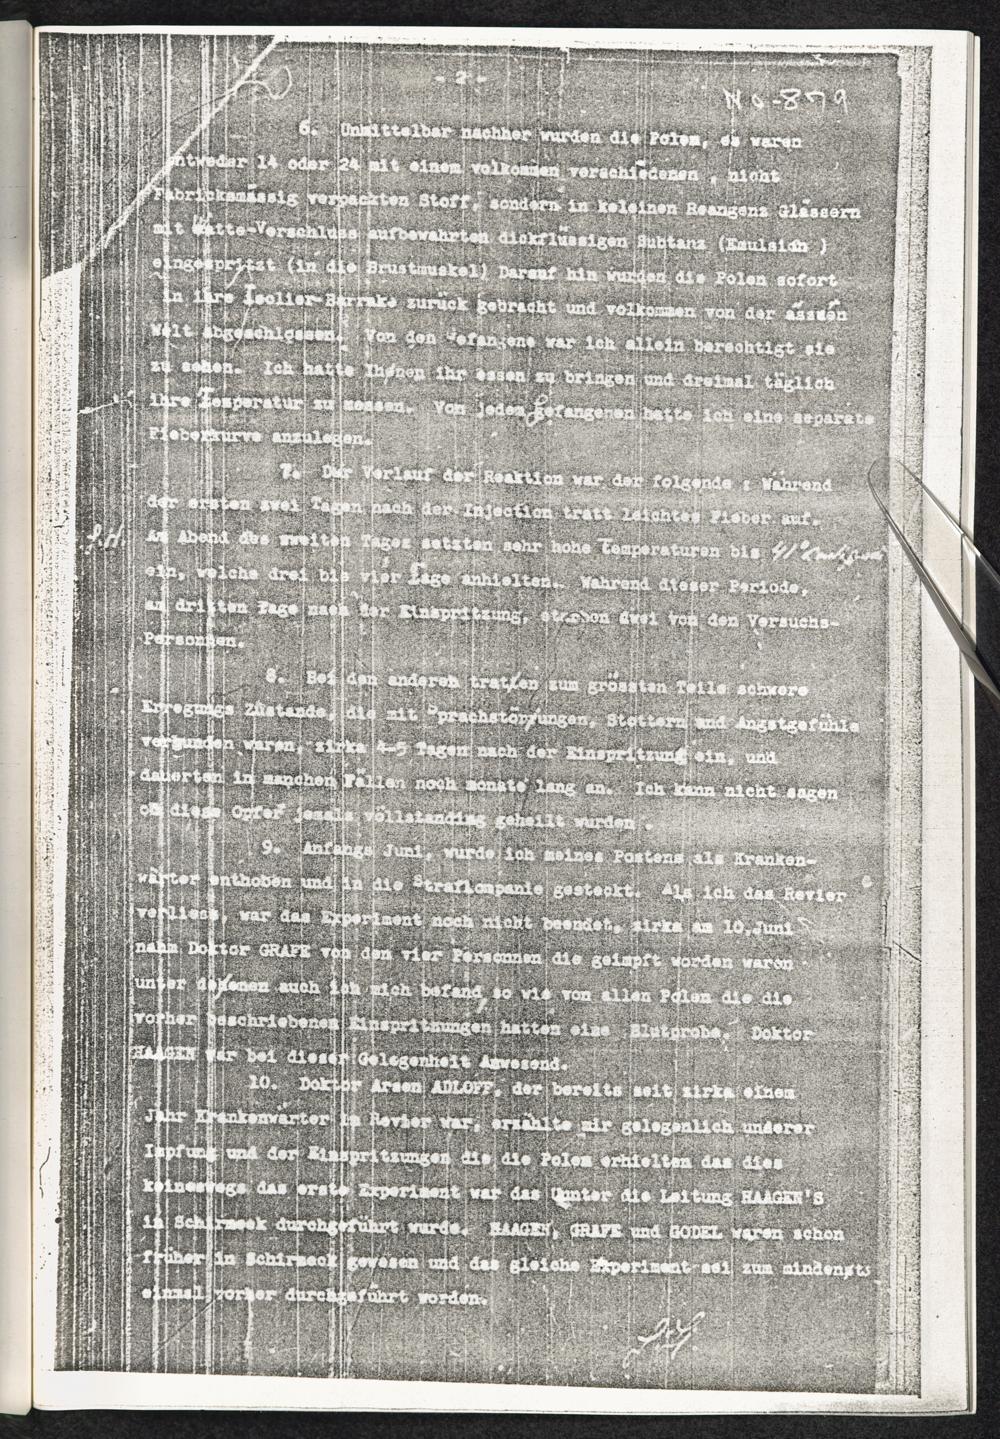 - 2 -
NO-879
6. Unmittelbar nachher wurden die Polen, es waren
entweder 14 oder 24 mit einem volkommen verschiedenen , nicht
Fabricksmässig verpackten Stoff, sondern in keleinen Reangenz Glässern
mit Watte-Verschluss aufbewahrten dickflüssigen Subtanz (Emulsion )
eingespritzt (in die Brustmuskel) Darauf hin wurden die Polen sofort
in ihre Isolier-Barrake zurück gebracht und volkommen von der
Welt abgeschlossen. Von den Gefangene war ich allein berechtigt sie
zu sehen. Ich hatte Ihenen ihr essen zu bringen und dreimal täglich
ihre Temperatur zu messen. Von jeden gefangenen hatte ich eine separate
Fieberkurve anzulegen.
7. Der Verlauf der Reaktion war der folgende : Während
der ersten zwei Tagen nach der Injection tratt leichtes Fieber auf.
J.H. Am Abend des zweiten Tages setzten sehr hohe Temperaturen bis 41°
ein, welche drei bis vier Tage anhielten. Wahrend dieser Periode,
am dritten Tage nach der Einspritzung, starben zwei von den Versuchs-
Personnen.
8. Bei den anderen tratten zum grössten Teile schwere
Erregungs Züstande, die mit Sprachstöprungen, Stottern und Angstgefühle
verbunden waren, zirka 4-5 Tagen nach der Einspritzung ein, und
dauerten in manchen Fällen noch monate lang an. Ich kann nicht sagen
ob diese Opfer jemals völlstanding geheilt wurden .
9. Anfangs Juni, wurde ich meines Postens als Kranken-
wärter enthoben und in die Straflompanie gesteckt. Als ich das Revier
verliess, war das Experiment noch nicht beendet, zirka am 10.Juni
nahm Doktor GRAFE von den vier Personnen die geimpft worden waren
unter denen auch ich mich befand, so wie von allen Polen die die
vorher beschriebenen Einspritnungen hatten eine Blutprobe. Doktor
HAAGEN war bei dieser Gelegenheit Anwesend.
10. Doktor Arsen ADLOFF, der bereits seit zirka einem
Jahr Krankenwärter im Revier war, erzählte mir gelegenlich unserer
Impfung und der Einspritzungen die die Polen erhielten das dies
keineswegs das erste Experiment war das unter die Leitung HAAGEN'S
in Schirmeek durchgeführt wurde. HAAGEN, GRAFE und GODEL waren schon
früher in Schirmeck gewesen und das gleiche Experiment sei zum mindensts
einmal vorher durchgeführt worden.
J.H.